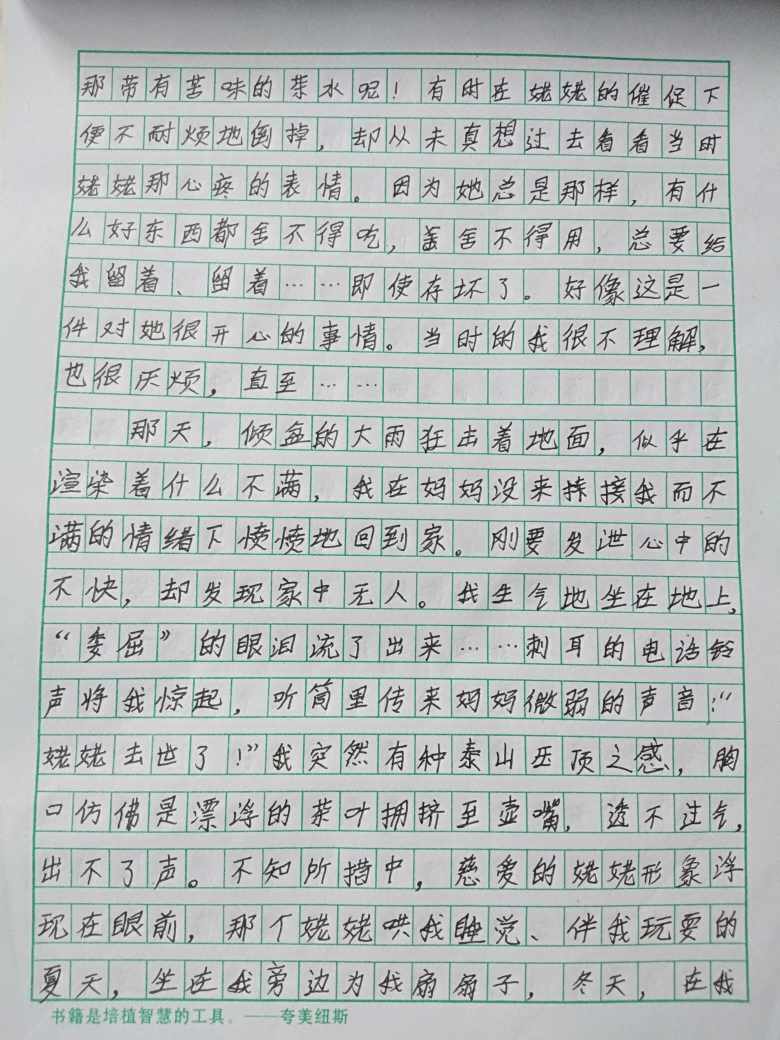 那带有苦味的茶水呢！有时在姥姥的催促下
便不耐烦地倒掉，却从未真想过去看看当时
姥姥那心疼的表情。因为她总是那样，有什
么好东西都舍不得吃，盖舍不得用，总要给
我留着、留着……即使存坏了。好像这是一
件对她很开心的事情。当时的我很不理解，
也很厌烦，直至……
那天，倾盆的大雨狂击着地面，似乎在
渲染着什么不满，我在妈妈没来接我而不
满的情绪下愤愤地回到家。刚要发泄心中的
不快，却发现家中无人。我生气地坐在地上，
“委屈”的眼泪流了出来……刺耳的电话铃
声将我惊起，听筒里传来妈妈微弱的声音：“
姥姥去世了！”我突然有种泰山压顶之感，胸
口仿佛是漂浮的茶叶拥挤至壶嘴，透不过气，
出不了声。不知所措中，慈爱的姥姥形象浮
现在眼前，那个姥姥哄我睡觉、伴我玩耍的
夏天，坐在我旁边为我扇扇子，冬天，在我
书籍是培植智慧的工具。——夸美纽斯